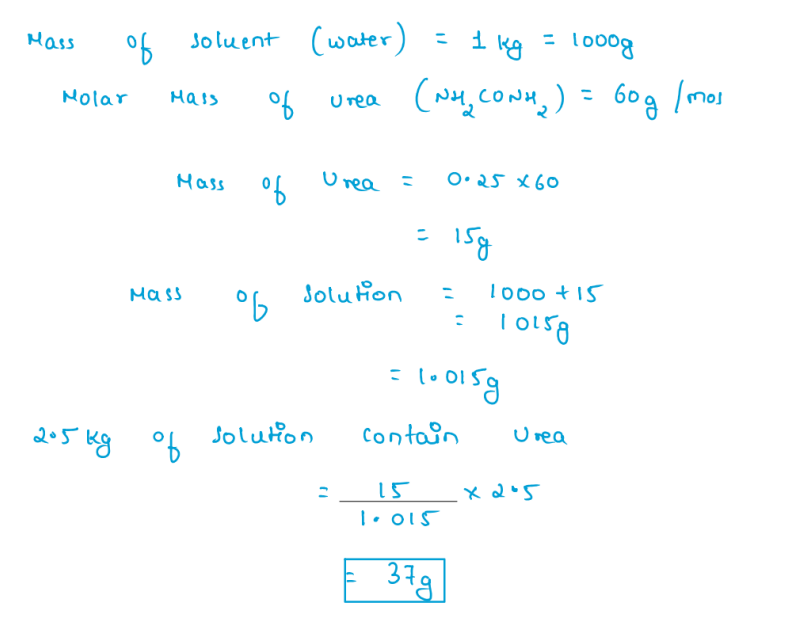 Mass of solvent (water) = 1 kg = 1000g
Molar Mass of urea (NH₂CONH₂) = 60g/mol
Mass of Urea = 0.25 × 60
= 15g
Mass of Solution = 1000 + 15
= 1015g
= 1.015g
2.5 kg of Solution contain Urea
= 15/1.015 × 2.5
= 37g